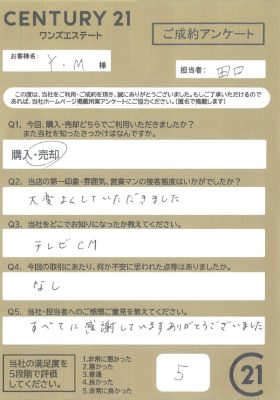 CENTURY 21
ワンズエステート
ご成約アンケート
お客様名:
Y.M 様
担当者: 田口
この度は、当社をご利用・ご成約を頂き、誠にありがとうございました。もしご了承いただけるので
あれば、当社ホームページ掲載用案アンケートにご協力ください。(匿名で掲載します)
Q1. 今回、購入・売却どちらでご利用いただきましたか?
また当社を知ったきっかけはなんですか。
購入・売却
Q2. 当店の第一印象・雰囲気、営業マンの接客態度はいかがでしたか?
大変よくしていただきました
Q3. 当社をどこでお知りになったか教えてください。
テレビCM
Q4. 今回の取引にあたり、何か不安に思われた点等はありましたか。
なし
Q5. 当社・担当者へのご感想ご意見を教えてください。
すべてに感謝していますありがとうございました
当社の満足度を
5段階で評価
してください。
1.非常に悪かった
2.悪かった
3.普通
4.良かった
5.非常に良かった
5
21